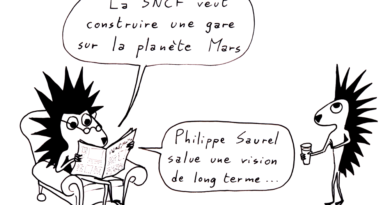 La SNCF veut
construire une gare
sur la planète Mars
Philippe Saurel
salue une vision
de long terme...